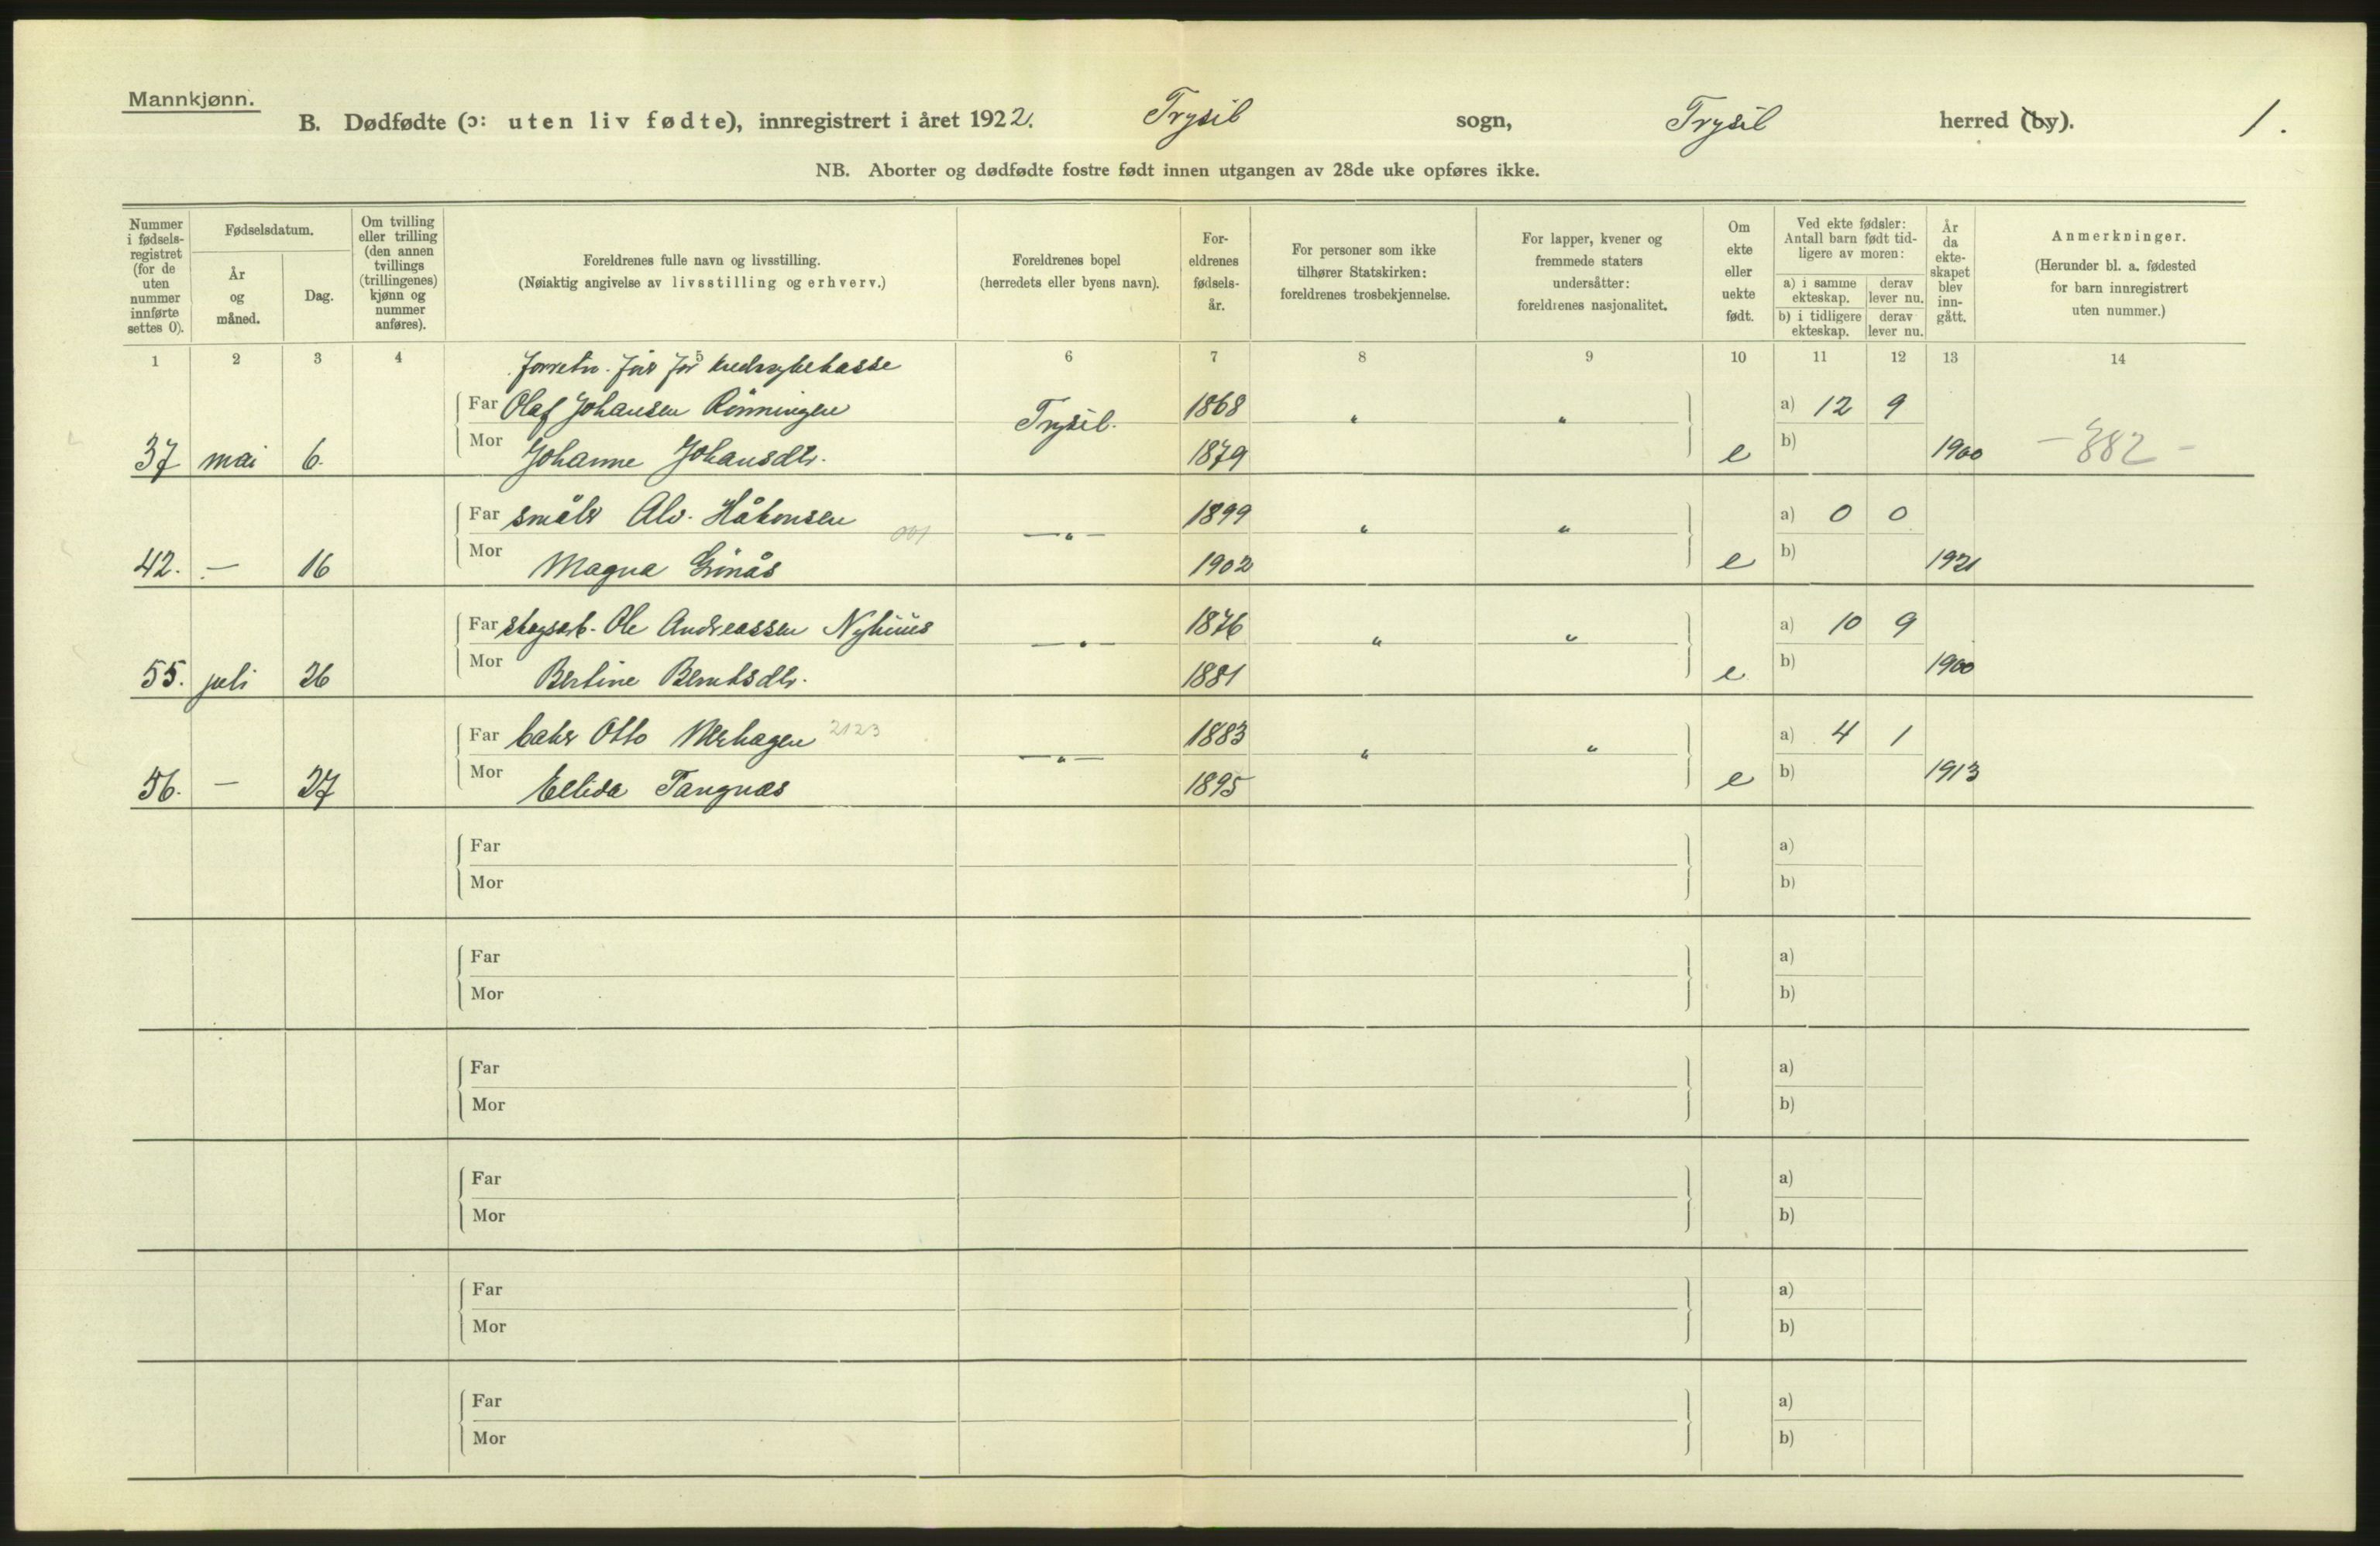 Mannkjønn.
B. Dødfødte (ɔ: uten liv fødte), innregistrert i året 1922. Trysil sogn, Trysil herred (by). 1.
NB. Aborter og dødfødte fostre født innen utgangen av 28de uke opføres ikke.
Nummer i fødsels-registret (for de uten nummer innførte settes 0).
Fødselsdatum.
År og måned.
Dag.
Om tvilling eller trilling (den annen tvillings (trillingenes) kjønn og nummer anføres).
Foreldrenes fulle navn og livsstilling.
(Nøiaktig angivelse av livsstilling og erhverv.)
Foreldrenes bopel
(herredets eller byens navn).
For-eldrenes fødsels-år.
For personer som ikke tilhører Statskirken: foreldrenes trosbekjennelse.
For lapper, kvener og fremmede staters undersåtter: foreldrenes nasjonalitet.
Om ekte eller uekte født.
Ved ekte fødsler: Antall barn født tid-ligere av moren:
a) i samme ekteskap. derav lever nu.
b) i tidligere ekteskap. derav lever nu.
År da ekte-skapet blev inn-gått.
Anmerkninger.
(Herunder bl. a. fødested for barn innregistrert uten nummer.)
1 2 3 4 5 6 7 8 9 10 11 12 13 14
Far Olaf Johansen Rønningen Trysil. 1868 " " a) 12 9
37 mai 6. Mor Johanne Johansdtr. 1879 e b) 1900 -882-
Far småbr Alv. Håkonsen 001 —"— 1899 " " a) 0 0
42. — 16 Mor Magna Grønås 1902 e b) 1921
Far skogsarb. Ole Andreassen Nyhuus —"— 1876 " " a) 10 9
55. juli 26 Mor Bertine Berntsdtr. 1881 e b) 1900
Far baker Otto Merhagen 2123 —"— 1883 " " a) 4 1
56. — 27 Mor Ellida Tangnæs 1895 e b) 1913
Far a)
Mor b)
Far a)
Mor b)
Far a)
Mor b)
Far a)
Mor b)
Far a)
Mor b)
Far a)
Mor b)